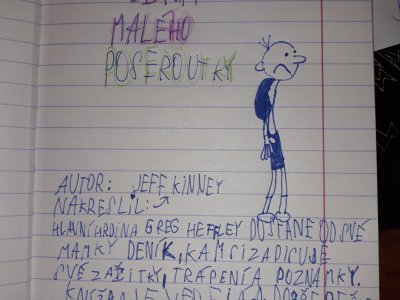 MALÉHO
POSEROUTKY
AUTOR: JEFF KINNEY
NAKRESLIL:
HLAVNÍ HRDINA GREG HEFFLEY DOSTANE OD SVÉ
MAMKY DENÍK, KAM SI ZAPISUJE
SVÉ ZÁŽITKY, TRÁPENÍ A POZNÁMKY.